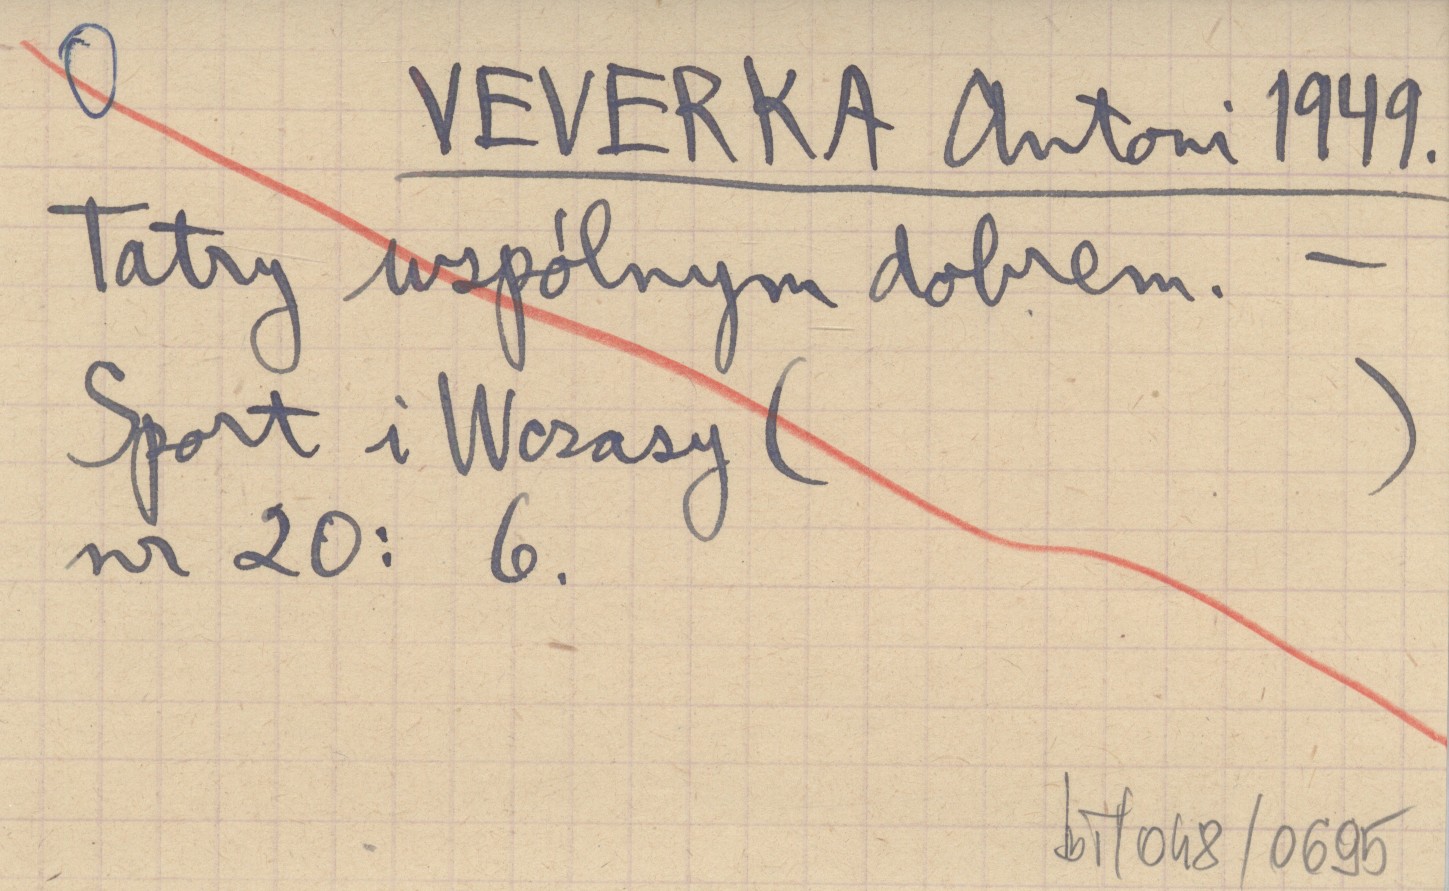 O
VEVERKA Antoni 1949.
Tatry wspólnym dobrem. —
Sport i Wczasy ( )
nr 20: 6.
biT/048/0695